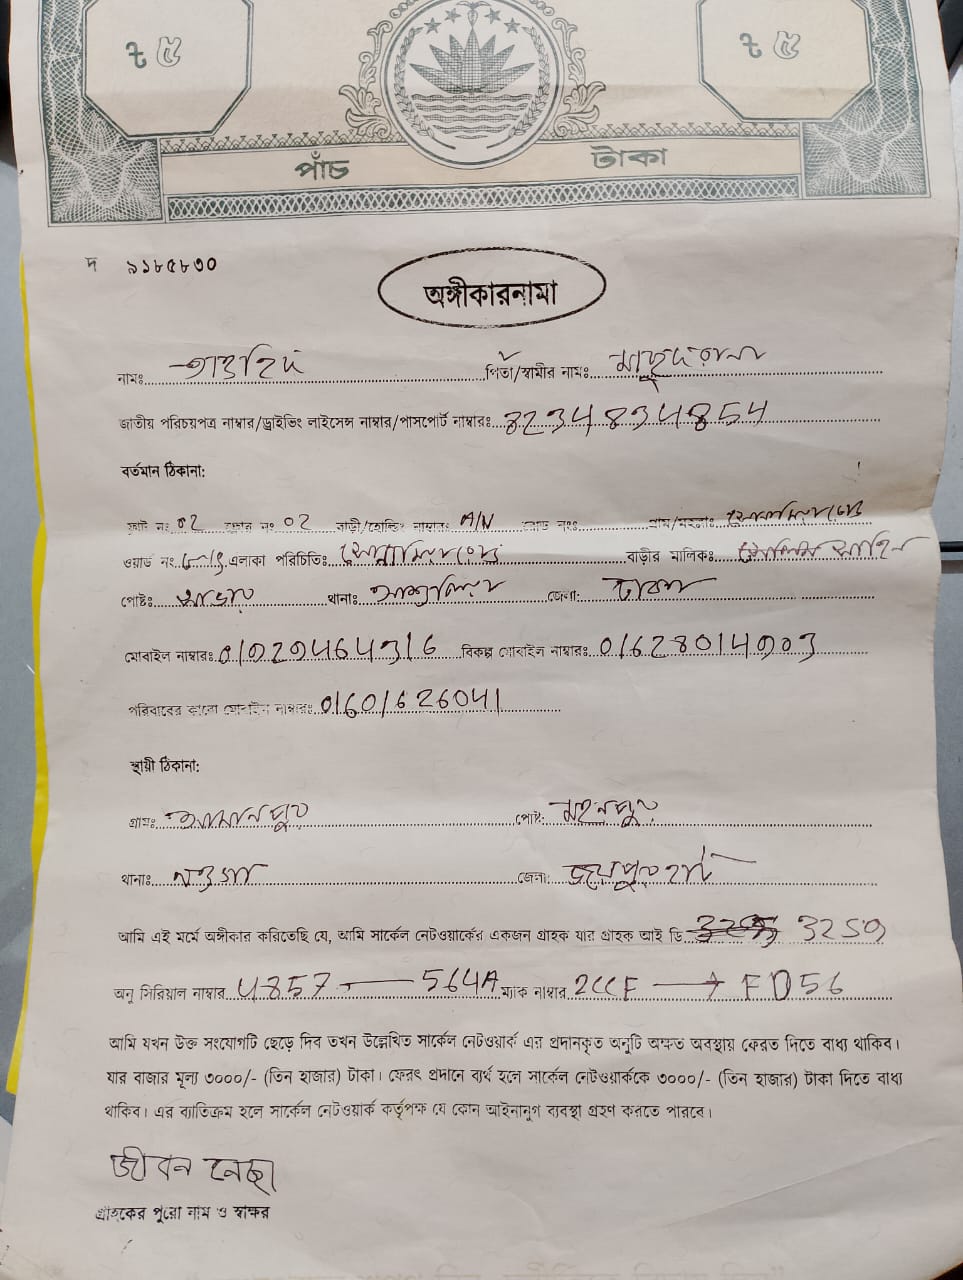 ৳ ৫ ৳ ৫
পাঁচ টাকা
দ ৯১৮৫৮৩০
অঙ্গীকারনামা
নামঃ তাওহিদ পিতা/স্বামীর নামঃ
জাতীয় পরিচয়পত্র নাম্বার/ড্রাইভিং লাইসেন্স নাম্বার/পাসপোর্ট নাম্বারঃ 8234834854
বর্তমান ঠিকানা:
ফ্লাট নং 02 ফ্লোর নং 02 বাড়ী/হোল্ডিং নাম্বারঃ A/N রোড নংঃ গ্রাম/মহল্লাঃ
ওয়ার্ড নং এলাকা পরিচিতিঃ বাড়ীর মালিকঃ
পোষ্টঃ সাভার থানাঃ আশুলিয়া জেলা: ঢাকা
মোবাইল নাম্বারঃ বিকল্প মোবাইল নাম্বারঃ
পরিবারের কারো মোবাইল নাম্বারঃ 01601626041
স্থায়ী ঠিকানা:
গ্রামঃ পোষ্ট:
থানাঃ জেলা: জয়পুরহাট
আমি এই মর্মে অঙ্গীকার করিতেছি যে, আমি সার্কেল নেটওয়ার্কের একজন গ্রাহক যার গ্রাহক আই ডি 3259
অনু সিরিয়াল নাম্বার 4857 — 564A ম্যাক নাম্বার 2CCF → FD56
আমি যখন উক্ত সংযোগটি ছেড়ে দিব তখন উল্লেখিত সার্কেল নেটওয়ার্ক এর প্রদানকৃত অনুটি অক্ষত অবস্থায় ফেরত দিতে বাধ্য থাকিব।
যার বাজার মূল্য ৩০০০/- (তিন হাজার) টাকা। ফেরৎ প্রদানে ব্যর্থ হলে সার্কেল নেটওয়ার্ককে ৩০০০/- (তিন হাজার) টাকা দিতে বাধ্য
থাকিব। এর ব্যতিক্রম হলে সার্কেল নেটওয়ার্ক কর্তৃপক্ষ যে কোন আইনানুগ ব্যবস্থা গ্রহণ করতে পারবে।
জীবন নেছা
গ্রাহকের পুরো নাম ও স্বাক্ষর